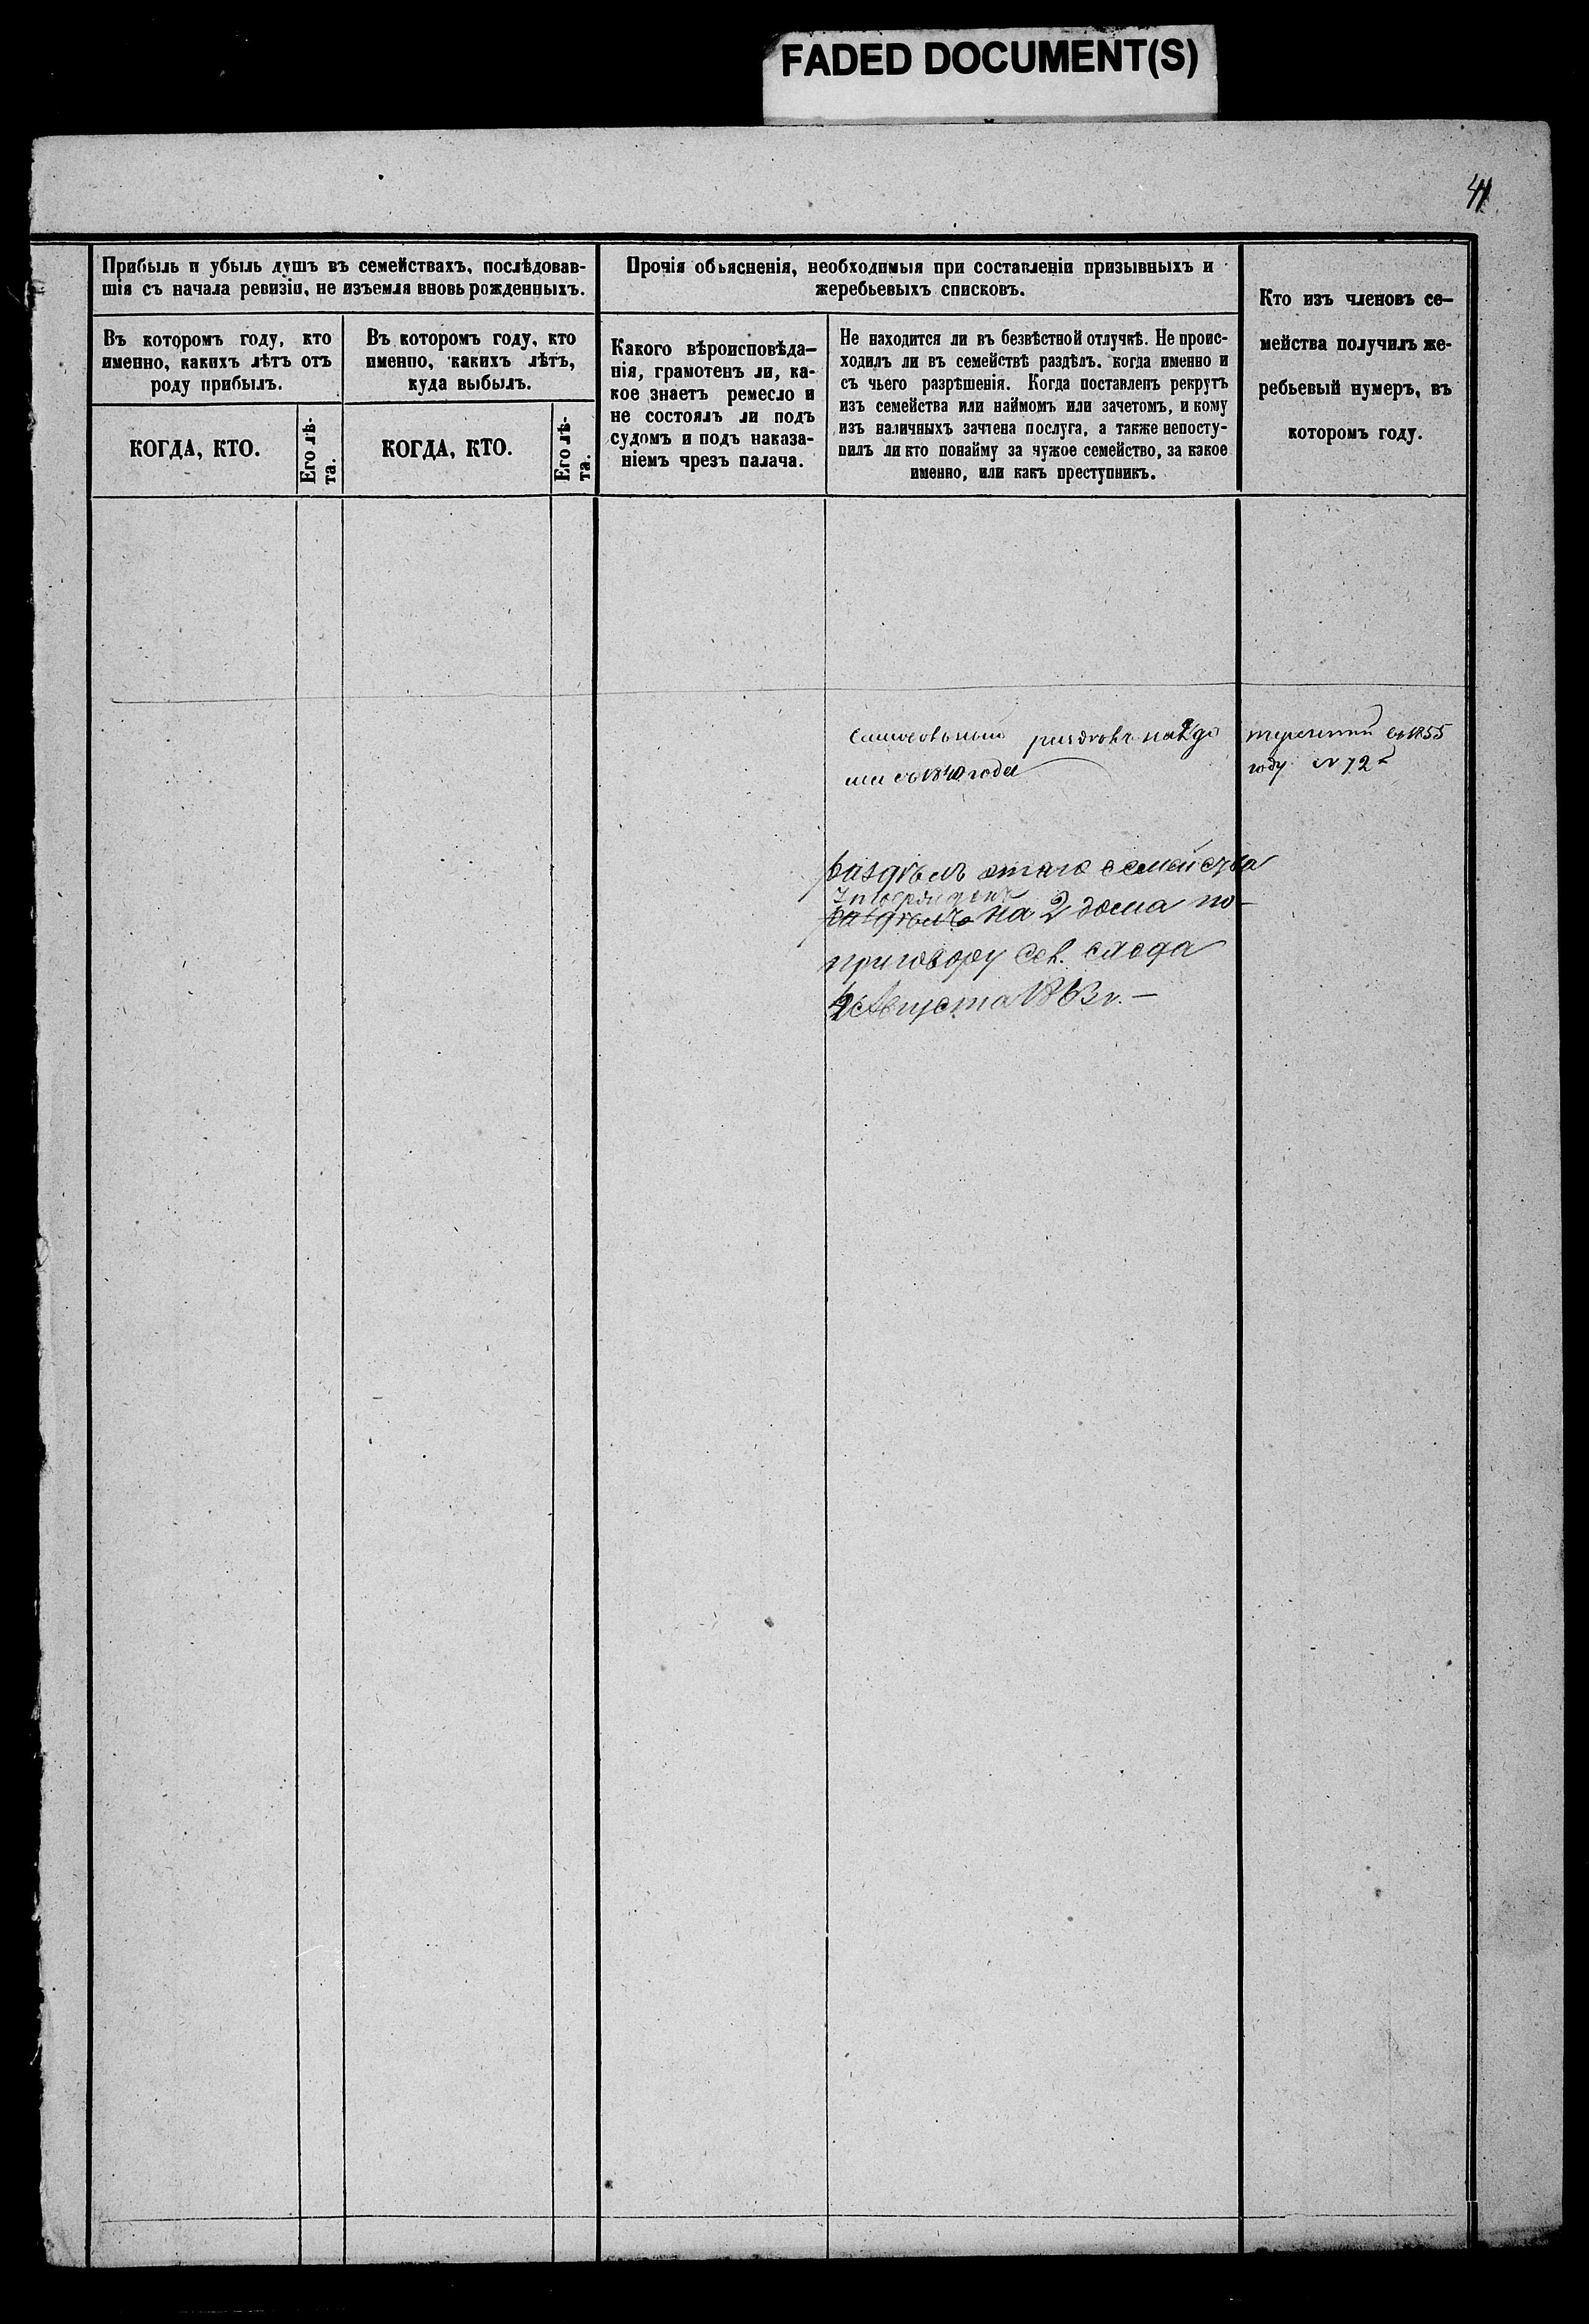 FADED DOCUMENT(S)
41
Прибыль и убыль душъ въ семействахъ, послѣдовав-
шія съ начала ревизіи, не изъемля вновь рожденныхъ.
Въ которомъ году, кто
именно, какихъ лѣтъ отъ
роду прибылъ.
КОГДА, КТО.
Его лѣ-
та.
Въ которомъ году, кто
именно, какихъ лѣтъ,
куда выбылъ.
КОГДА, КТО.
Его лѣ-
та.
Прочія объясненія, необходимыя при составленіи призывныхъ и
жеребьевыхъ списковъ.
Какого вѣроисповѣда-
нія, грамотенъ ли, ка-
кое знаетъ ремесло и
не состоялъ ли подъ
судомъ и подъ наказа-
ніемъ чрезъ палача.
Не находится ли въ безвѣстной отлучкѣ. Не проис-
ходилъ ли въ семействѣ раздѣлъ. когда именно и
съ чьего разрѣшенія. Когда поставленъ рекрутъ
изъ семейства или наймомъ или зачетомъ, и кому
изъ наличныхъ зачтена послуга, а также непосту-
пилъ ли кто понайму за чужое семейство, за какое
именно, или какъ преступникъ.
Кто изъ членовъ се-
мейства получилъ же-
ребьевый нумеръ, въ
которомъ году.
на 2 до
ма съ 1840 года
въ 1855
году № 72
раздѣлъ этаго семейства
раздѣлъ на 2 дома по
приговору Сел. схода
Августа 1863 г. —